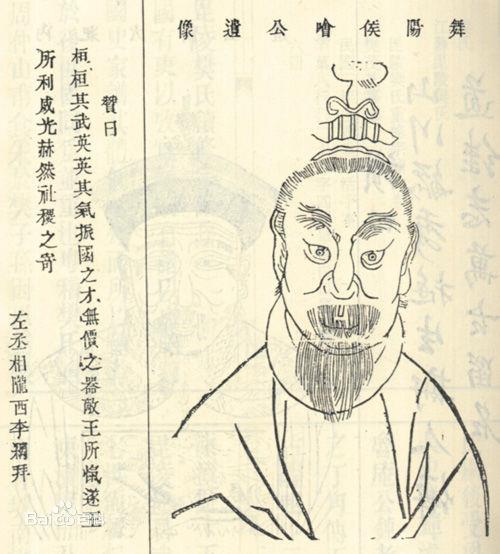 舞陽侯噲公遺像
贊曰
桓桓其武英英其氣振國之才無價之器敵王所愾遂王
所利威光赫然社稷之寄
左丞相隴西李綱拜
Bai百科